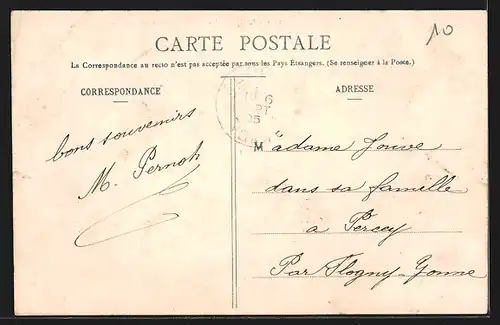 10
CARTE POSTALE
La Correspondance au recto n'est pas acceptée par tous les Pays Étrangers. (Se renseigner à la Poste.)
CORRESPONDANCE
ADRESSE
bons souvenirs
M. Pernoh
Madame Jouve
dans sa famille
a Percey
Par Flogny-Yonne